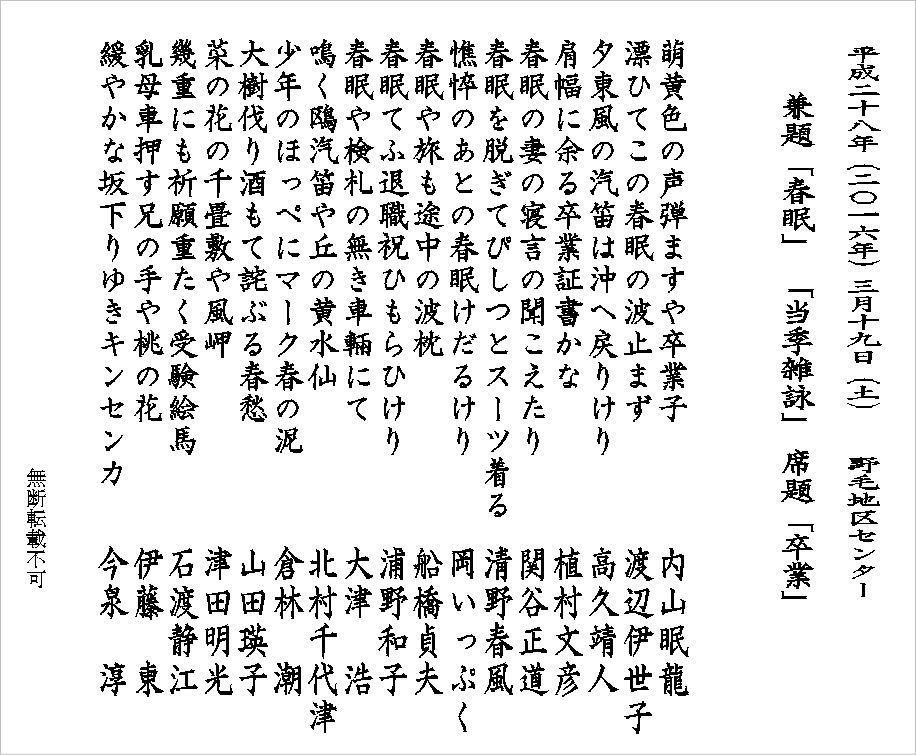 平成二十八年(二〇一六年)三月十九日(土) 野毛地区センター
兼題「春眠」「当季雑詠」席題「卒業」
萌黄色の声弾ますや卒業子 内山眠龍
漂ひてこの春眠の波止まず 渡辺伊世子
夕東風の汽笛は沖へ戻りけり 高久靖人
肩幅に余る卒業証書かな 植村文彦
春眠の妻の寝言の聞こえたり 関谷正道
春眠を脱ぎてぴしつとスーツ着る 清野春風
憔悴のあとの春眠けだるけり 岡いっぷく
春眠や旅も途中の波枕 船橋貞夫
春眠てふ退職祝ひもらひけり 浦野和子
春眠や検札の無き車輌にて 大津浩
鳴く鴎汽笛や丘の黄水仙 北村千代津
少年のほっぺにマーク春の泥 倉林潮
大樹伐り酒もて詫ぶる春愁 山田瑛子
菜の花の千畳敷や風岬 津田明光
幾重にも祈願重たく受験絵馬 石渡静江
乳母車押す兄の手や桃の花 伊藤東
緩やかな坂下りゆきキンセンカ 今泉淳
無断転載不可